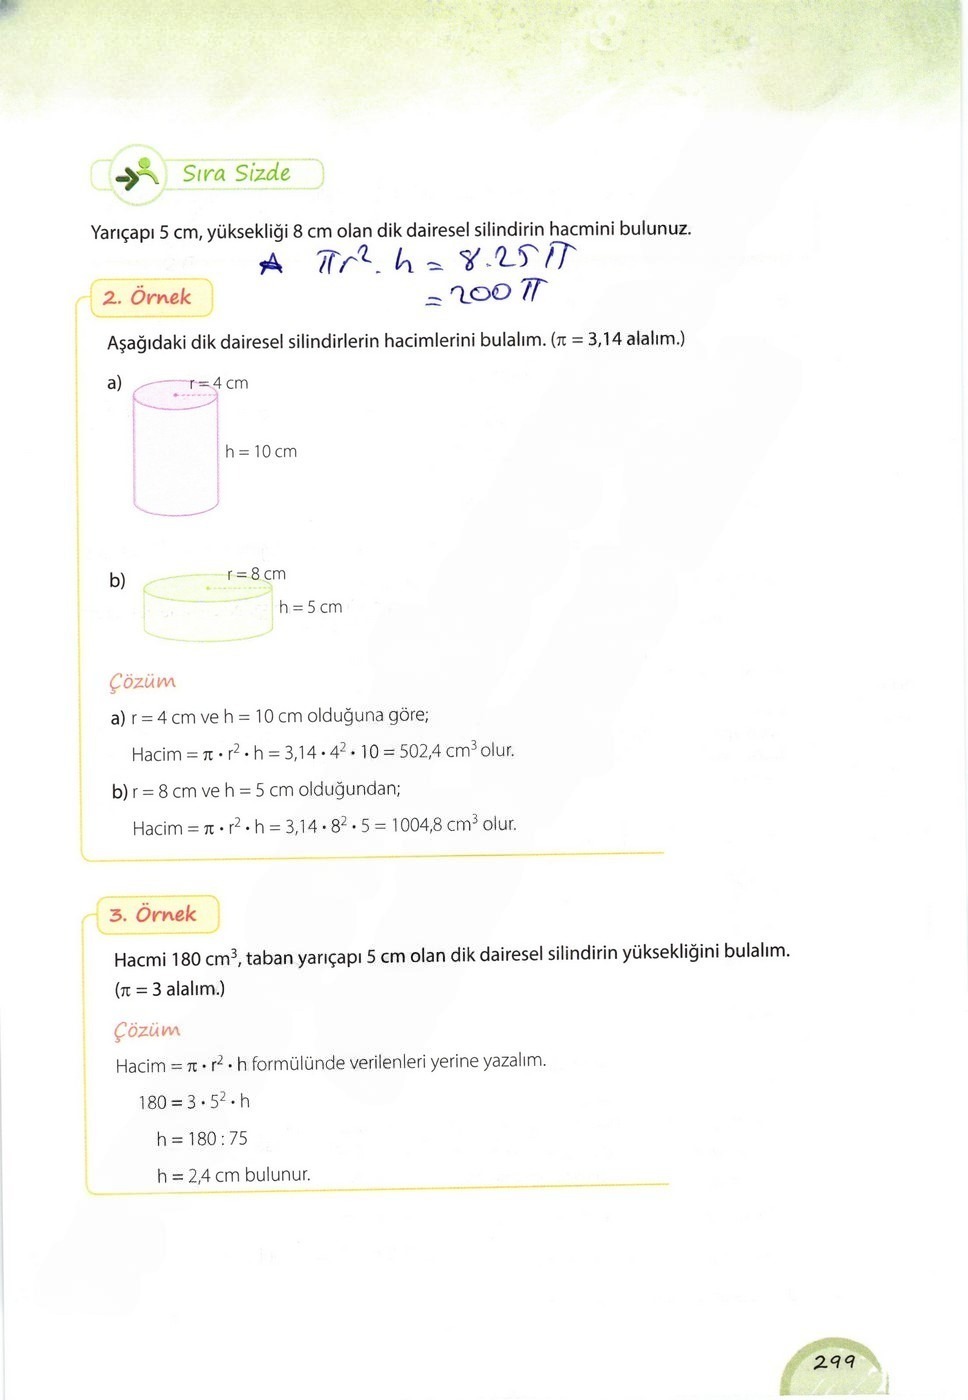 Sıra Sizde
Yarıçapı 5 cm, yüksekliği 8 cm olan dik dairesel silindirin hacmini bulunuz.
A πr². h = 8.25π
= 200π
2. Örnek
Aşağıdaki dik dairesel silindirlerin hacimlerini bulalım. (π = 3,14 alalım.)
a)
r = 4 cm
h = 10 cm
b)
r = 8 cm
h = 5 cm
Çözüm
a) r = 4 cm ve h = 10 cm olduğuna göre;
Hacim = π • r² • h = 3,14 • 4² • 10 = 502,4 cm³ olur.
b) r = 8 cm ve h = 5 cm olduğundan;
Hacim = π • r² • h = 3,14 • 8² • 5 = 1004,8 cm³ olur.
3. Örnek
Hacmi 180 cm³, taban yarıçapı 5 cm olan dik dairesel silindirin yüksekliğini bulalım.
(π = 3 alalım.)
Çözüm
Hacim = π • r² • h formülünde verilenleri yerine yazalım.
180 = 3 • 5² • h
h = 180 : 75
h = 2,4 cm bulunur.
299